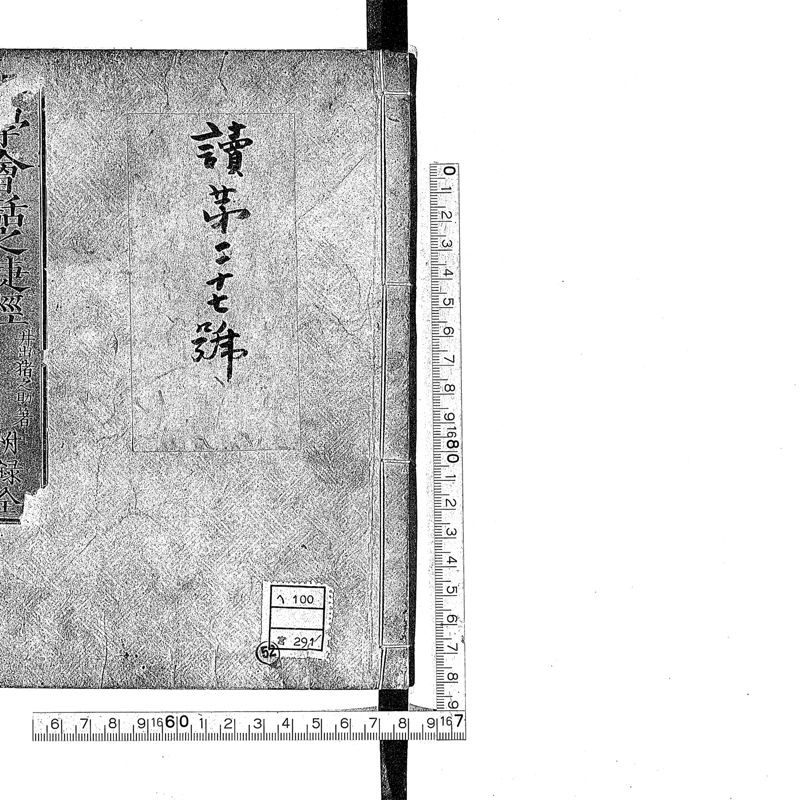 讀第二十七號
會話之捷徑
井出猪之助著
附録全
ヘ 100
291
52
0 1 2 3 4 5 6 7 8 9 80 1 2 3 4 5 6 7 8 9
6 7 8 9 60 1 2 3 4 5 6 7 8 9 7